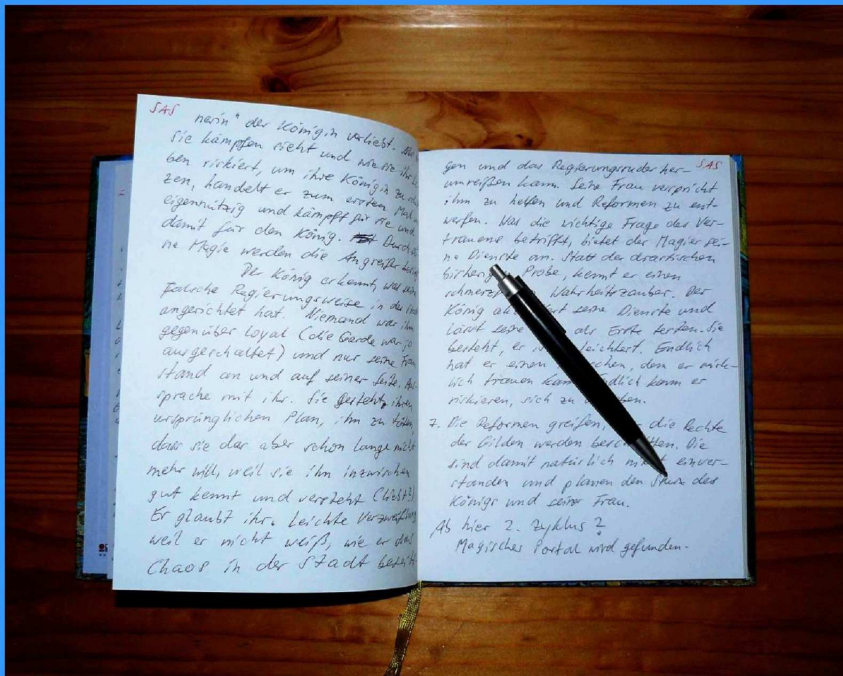 SAS
nerin" der Königin verliebt. Als er
sie kämpfen sieht und wie sie ihr Le-
ben riskiert, um ihre Königin zu schüt-
zen, handelt er zum ersten Mal un-
eigennützig und kämpft für sie und
damit für den König. Durch
ne Magie werden die Angreifer
Der König erkennt, was seine
falsche Regierungsweise in der
angerichtet hat. Niemand war ihm
gegenüber loyal (die Garde war ja
ausgeschaltet) und nur seine Frau
stand an und auf seiner Seite. Aus-
sprache mit ihr. Sie gesteht, ihren
ursprünglichen Plan, ihn zu töten,
dass sie das aber schon lange nicht
mehr will, weil sie ihn inzwischen
gut kennt und versteht (liebt?)
Er glaubt ihr. Leichte Verzweiflung
weil er nicht weiß, wie er das
Chaos in der Stadt beseiti-
SAS
gen und das Regierungsruder her-
umreißen kann. Seine Frau verspricht
ihm zu helfen und Reformen zu ent-
werfen. Was die wichtige Frage des Ver-
trauens betrifft, bietet der Magier sei-
ne Dienste an. Statt der drastischen
bisherigen Probe, kennt er einen
Wahrheitszauber. Der
König seine Dienste und
lässt seine als Erste testen. Sie
besteht, er ist erleichtert. Endlich
hat er einen Menschen, dem er wirk-
lich trauen kann. Endlich kann er
riskieren, sich zu
7. Die Reformen greifen, die Rechte
der Gilden werden beschnitten. Die
sind damit natürlich nicht einver-
standen und planen den Sturz des
Königs und seiner Frau.
Ab hier 2. Zyklus?
Magisches Portal wird gefunden.